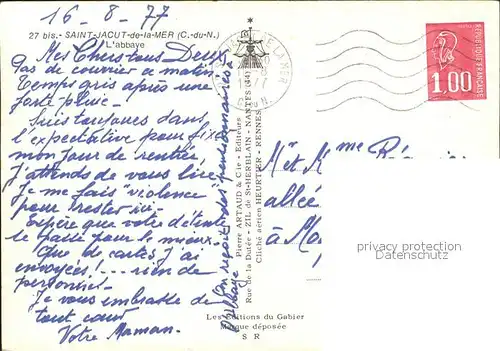 16-8-77
27 bis. - SAINT-JACUT-de-la-MER (C.-du-N.)
L'abbaye
Mes Chers tous Deux
Pas de courrier ce matin
Temps gris après une
forte pluie -
Suis toujours dans
l'expectative pour fixer
mon jour de rentrée,
J'attends de vous lire
Je me fais "violence"
pour rester ici.
Espère que votre détente
se passe pour le mieux.
Que de cartes j'ai
envoyées! --- rien de
personne.
Je vous embrasse de
tout cœur
Votre Maman.
Pierre ARTAUD & Cie - Editeurs
Rue de la Dutée - ZIL de St-HERBLAIN - NANTES (44)
Cliché aérien HEURTIER - RENNES
Les Editions du Gabier
Marque déposée
S R
DE LA MER
1,00
POSTE FRANÇAISE
M. et Mme
allée
à
privacy protection
Datenschutz